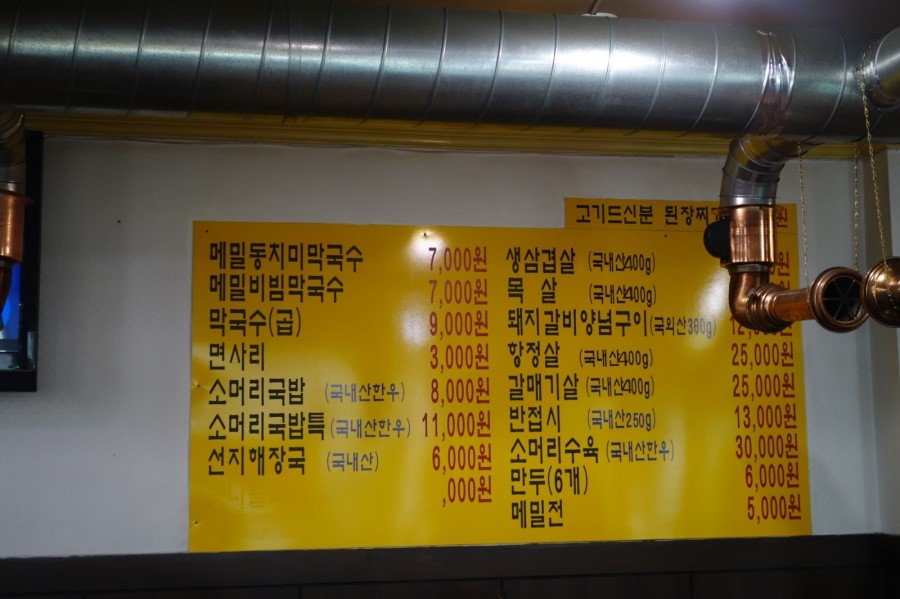 고기드신분 된장찌 원
메밀동치미막국수 7,000원
메밀비빔막국수 7,000원
막국수(곱) 9,000원
면사리 3,000원
소머리국밥 (국내산한우) 8,000원
소머리국밥특 (국내산한우) 11,000원
선지해장국 (국내산) 6,000원
,000원
생삼겹살 (국내산400g) 원
목 살 (국내산400g) 원
돼지갈비양념구이 (국외산360g)
항정살 (국내산400g) 25,000원
갈매기살 (국내산400g) 25,000원
반접시 (국내산250g) 13,000원
소머리수육 (국내산한우) 30,000원
만두(6개) 6,000원
메밀전 5,000원